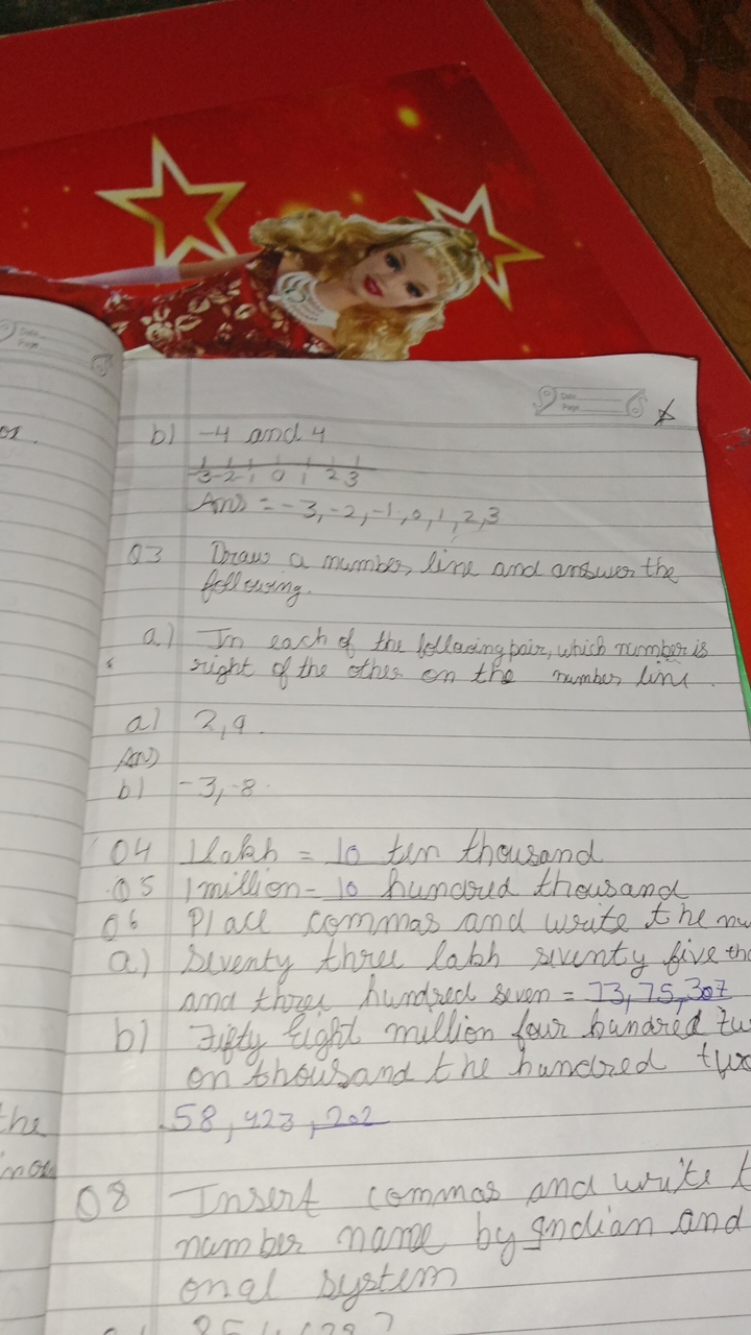 Date
Page
Date
Page
b) -4 and 4
-3 -2 -1 0 1 2 3
Ans = -3, -2, -1, 0, 1, 2, 3
Q3 Draw a number line and answer the
following.
a) In each of the following pair, which number is
right of the other on the number line.
a) 2, 9.
Ans)
b) -3, -8.
Q4 1 lakh = 10 ten thousand
Q5 1 million = 10 hundred thousand
Q6 Place commas and write the nu
a) Seventy three lakh seventy five tho
and three hundred seven = 73,75,307
b) Fifty eight million four hundred
on thousand the hundred two
58,423,202
the
Q8 Insert commas and write t
number name by Indian and
onal system